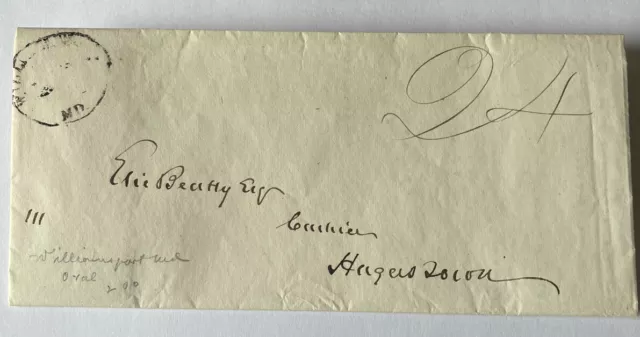 MD.
24
Elie Beatty Esq
Cashier
Hagerstown
III
Williamsport Md
Oval